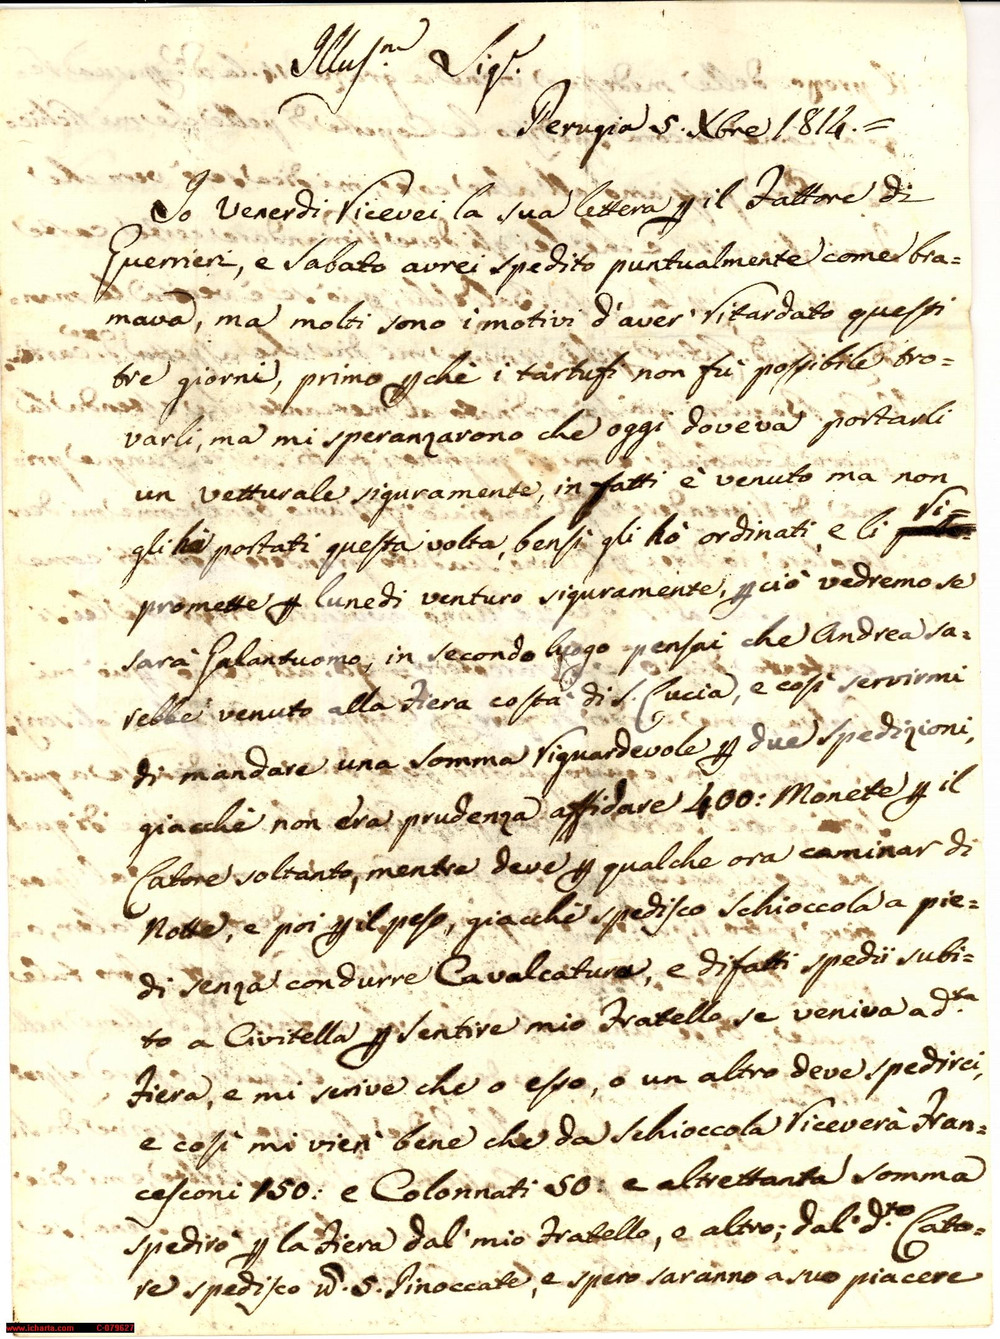 Illus.mo Sig.r
Perugia 5. Xbre 1814. =
Io Venerdi ricevei la sua lettera p il Fattore di
Guerrieri, e Sabato avrei spedito puntualmente come bra=
mava, ma molti sono i motivi d'aver' ritardato questi
tre giorni, primo pchè i tartufi non fù possibile tro=
varli, ma mi speranzarono che oggi doveva portarli
un vetturale siguramente, in fatti è venuto ma non
gli hà portati questa volta, bensì gli hò ordinati, e li ri=
promette p lunedi venturo siguramente, pciò vedremo se
sarà Galantuomo, in secondo luogo pensai che Andrea sa=
rebbe venuto alla Fiera costà di S. Lucia, e così servirmi
di mandare una somma riguardevole p due spedizioni,
giacchè non era prudenza affidare 400: Monete p il
Latore soltanto, mentre deve p qualche ora caminar di
Notte, e poi p il peso, giacchè spedisco Schioccola a pie=
di senza condurre Cavalcatura, e difatti spedii subi=
to a Civitella p sentire mio Fratello se veniva a d.ta
Fiera, e mi scrive che o esso, o un altro deve spedirci,
e così mi vien' bene che da Schioccola riceverà Fran=
cesconi 150: e Colonnati 50: e altrettanta somma
spedirò p la Fiera dal' mio Fratello, e altro; dal' d.to Lato=
re spedisco 5. Pinoccate, e spero saranno a suo piacere
www.icharta.com C-079627